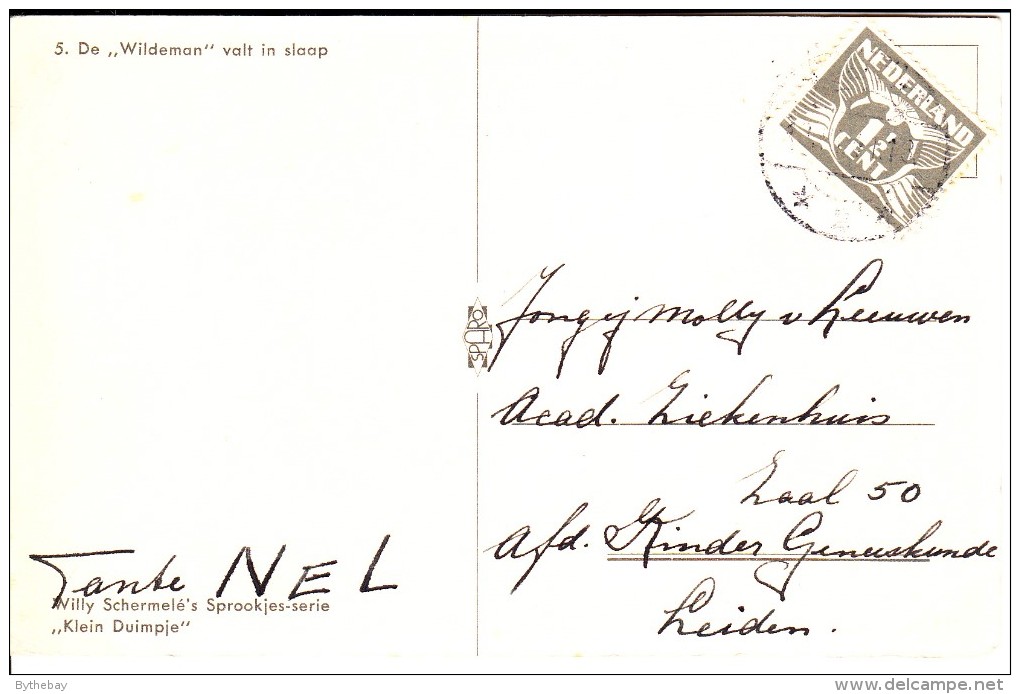 5. De „Wildeman" valt in slaap
NEDERLAND
1½
CENT
SPARO
Jongej Molly v Leeuwen
Acad. Ziekenhuis
Zaal 50
Afd. Kinder Geneeskunde
Leiden.
Tante NEL
Willy Schermelé's Sprookjes-serie
„Klein Duimpje"
Bythebay
delcampe.net